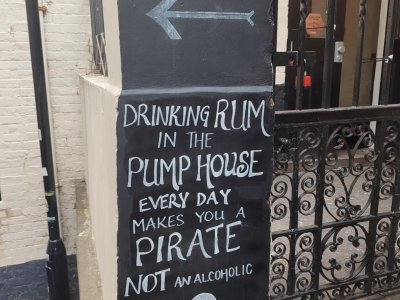 DRINKING RUM
IN THE
PUMP HOUSE
EVERY DAY
MAKES YOU A
PIRATE
NOT AN ALCOHOLIC